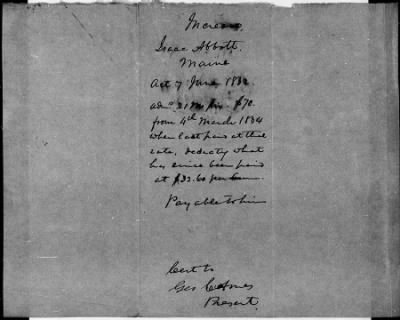 Increase,
Isaac Abbott.
Maine
Act 7 June 1832.
adm^d. $70.
from 4th March 1834
when last paid at that
rate, deducting what
has since been paid
at $32.60 per
Payable to him
Cert to
Geo
Present.